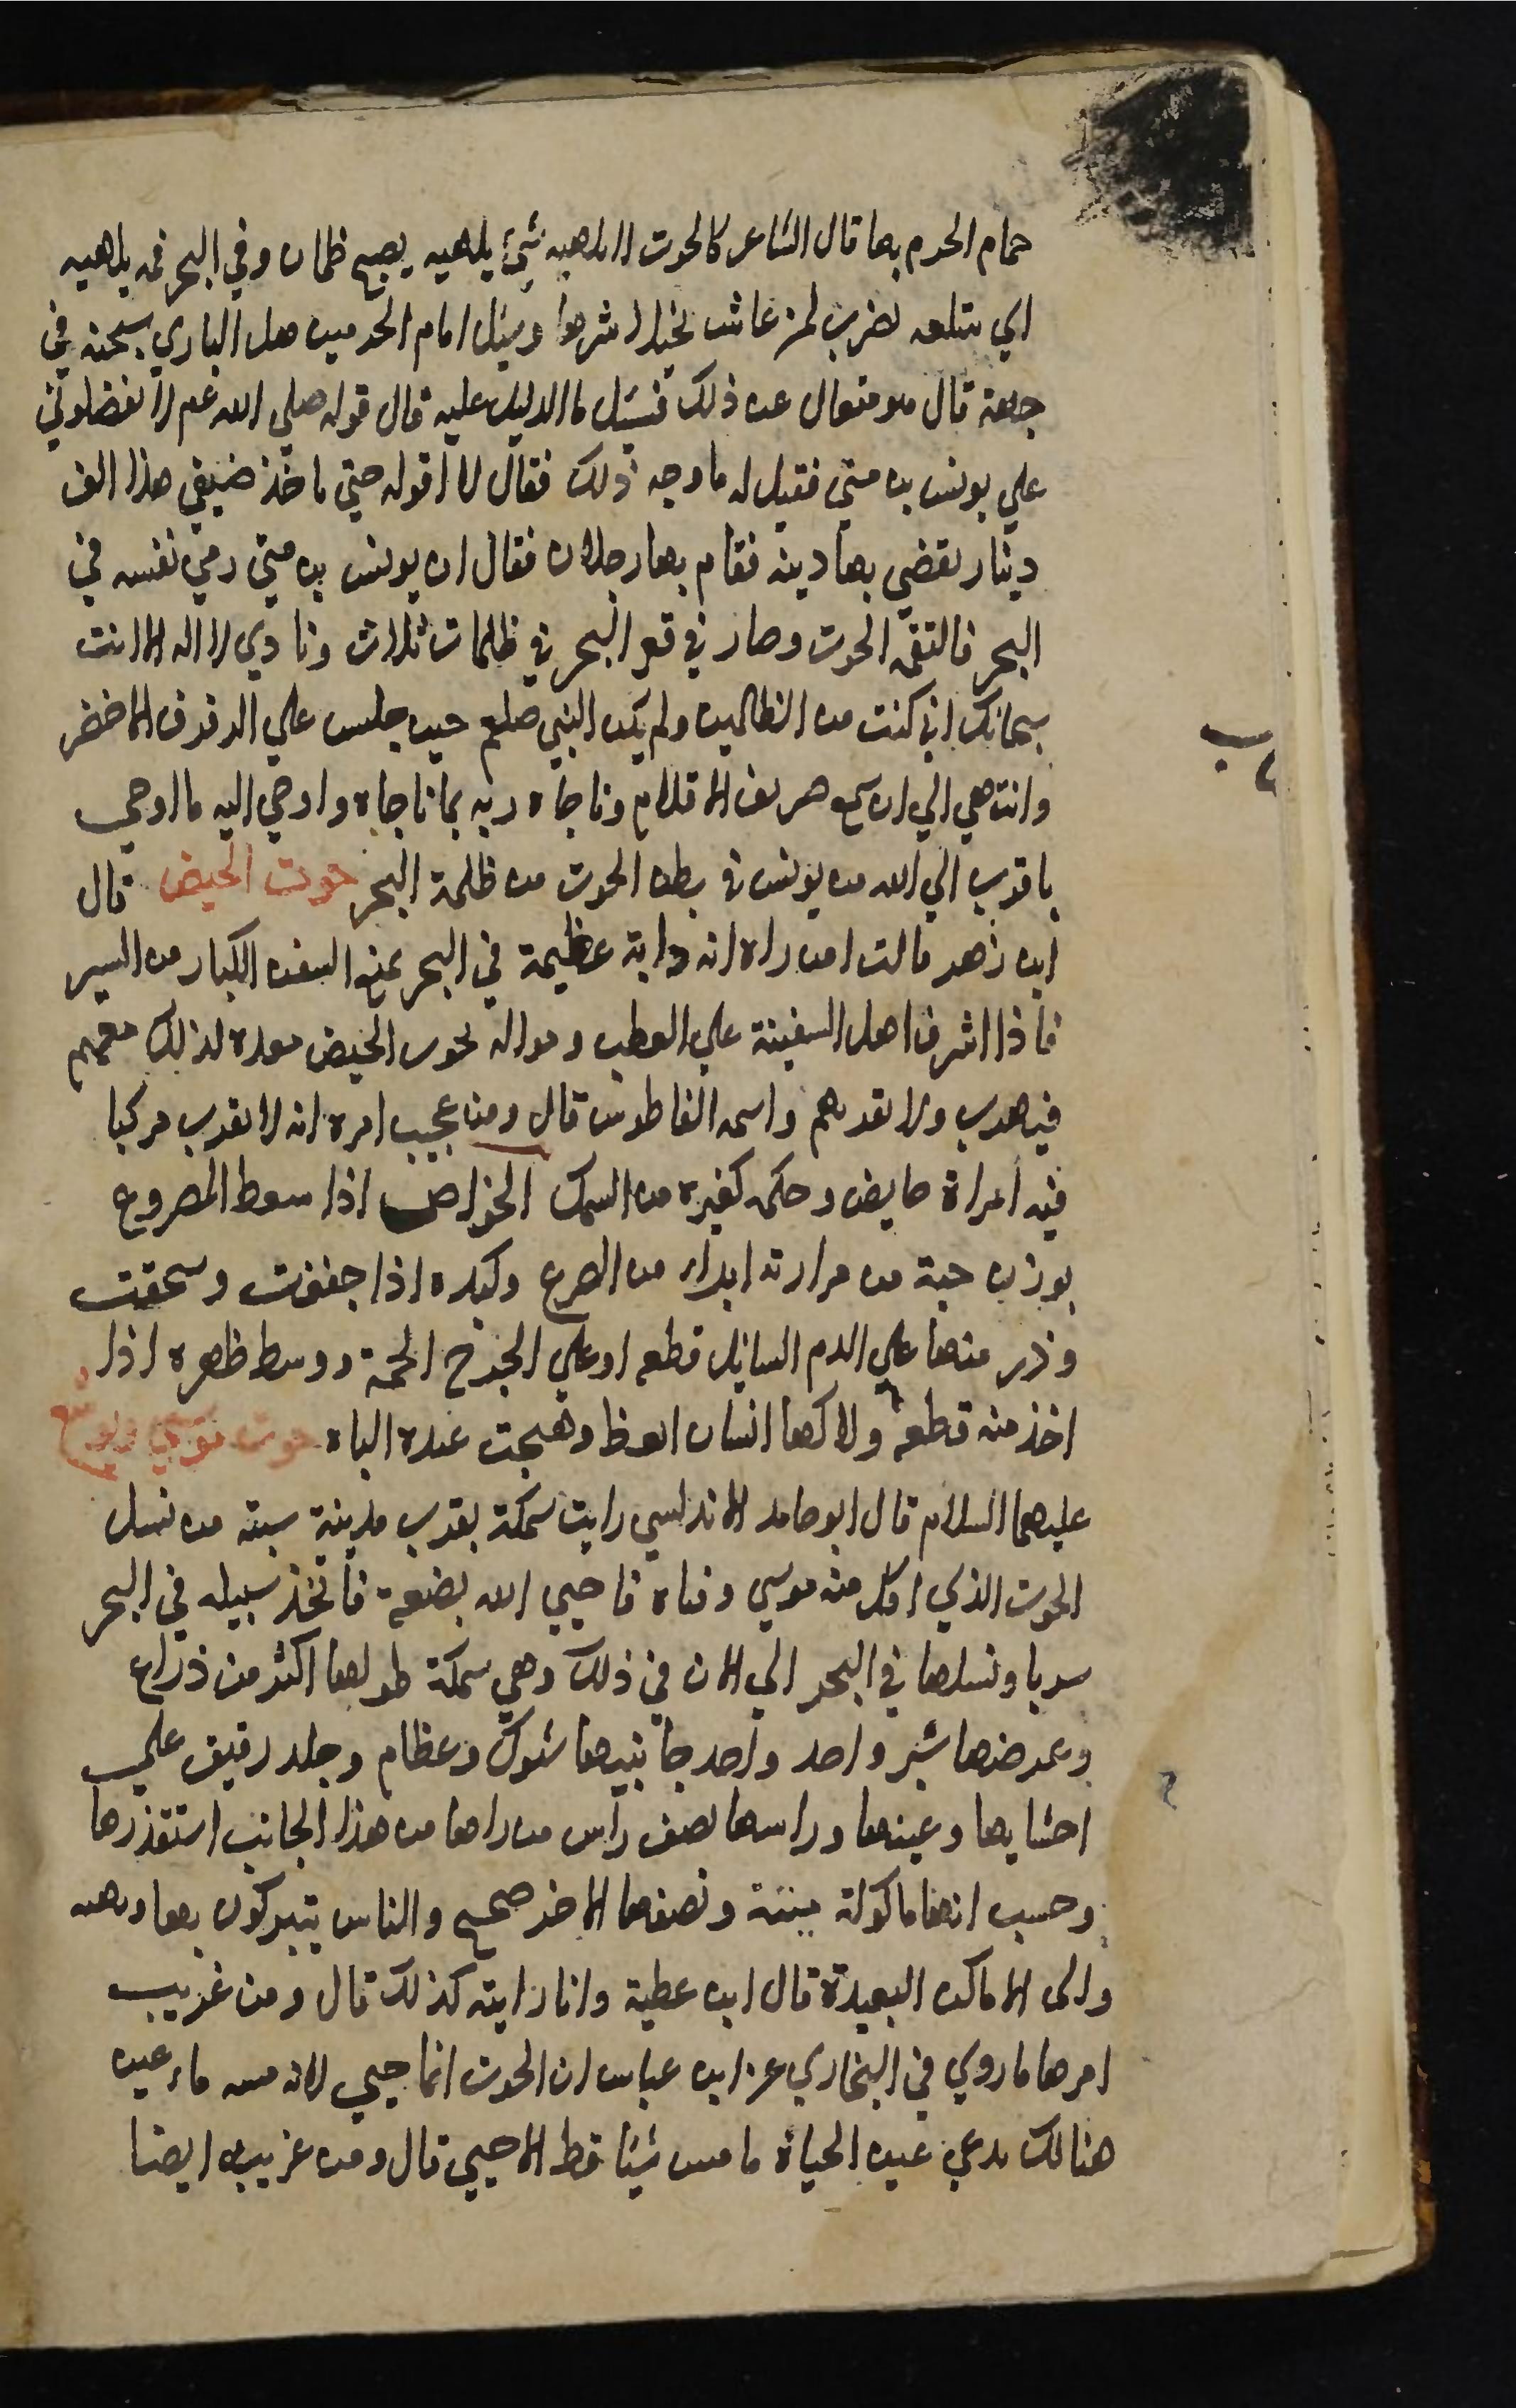 حمام الحرم بها قال الشاعر كالحوت لا يلهيه شئ يلهيه يصبح ظمان وفي البحر فمه يلهيه
اي يبتلعه يضرب لمن عاش بخيلا شرها وسئل امام الحرمين هل الباري سبحنه في
جهة قال هو متعال عن ذلك فسئل ما الدليل عليه قال قوله صلي الله عم لا تفضلوني
علي يونس بن متي فقيل له ما وجه ذلك فقال لا اقوله حتي ياخذ ضيفي هذا الف
دينار يقضي بها دينه فقام بها رجلان فقال ان يونس بن متي رمي نفسه في
البحر فالتقمه الحوت وصار في قعر البحر في ظلمات ثلاث ونادي لا اله الا انت
سبحانك اني كنت من الظالمين ولم يكن النبي صلعم حين جلس علي الرفرف الاخضر
وانتهي الي ان سمع صريف الاقلام وناجاه ربه بما ناجاه واوحي اليه ما اوحي
باقرب الي الله من يونس في بطن الحوت من ظلمة البحر حوت الحيض قال
ابن زهر قالت امن راه انه دابة عظيمة في البحر يمنع السفن الكبار من السير
فاذا اشرف اهل السفينة علي العطب ومواله بحوس الحيض معده لذلك معهم
فيهرب ولا يقربهم واسمه الفاطوس قال ومن عجيب امره انه لا يقرب مركبا
فيه امراة حايض وحكمه كغيره من السمك الخواص اذا سعط المصروع
بوزن حبة من مرارته ابراه من الصرع وكبده اذا جففت وسحقت
وذر منها علي الدم السايل قطعه او علي الجرح الحمه ووسط ظهره اذا
اخذ منه قطعة ولاكها انسان انعظ وهيجت عنده الباه حوت موسي ويوشع
عليهما السلام قال ابو حامد الاندلسي رايت سمكة بقرب مدينة سبته من نسل
الحوت الذي اكل منه موسي وفتاه فاحيي الله بضعه فاتخذ سبيله في البحر
سربا ونسلها في البحر الي الان في ذلك وهي سمكة طولها اكثر من ذراع
وعرضها شبر واحد واحد جانبيها شوك وعظام وجلد رقيق علي
احشايها وعينها وراسها نصف راس من راها من هذا الجانب استقذرها
وحسب انها ماكولة ميتة ونصفها الاخر صحيح والناس يتبركون بها ويهدونها
والى الاماكن البعيدة قال ابن عطية وانا رايته كذلك قال ومن غريب
امرها ما روي في البخاري عن ابن عباس ان الحوت انما حيي لانه مسه ماء عين
هنالك تدعي عين الحياة ما مس شيئا قط الا حيي قال ومن غريبه ايضا